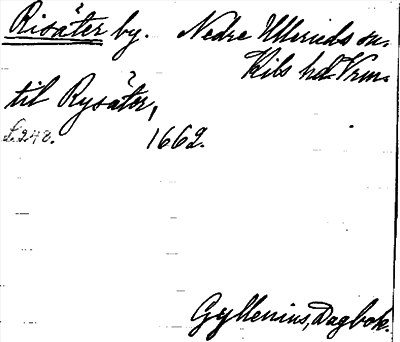 Risäter by. Nedre Ulleruds sn.
Kils hd. Vrm.
til Rysäter,
s. 248. 1662.
Gyllenius, Dagbok.